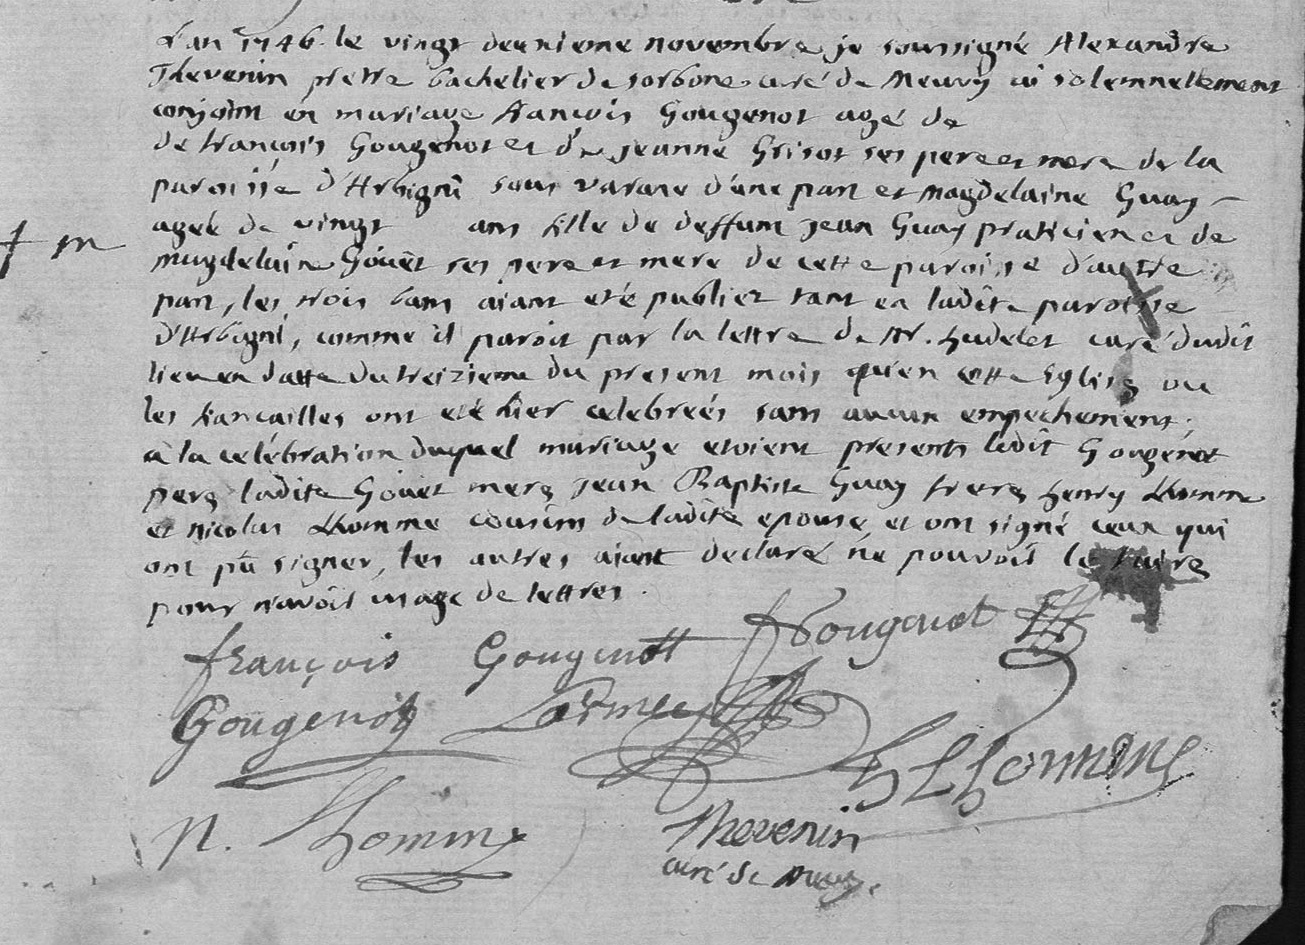 L'an 1746 le vingt deuxieme novembre je soussigné Alexandre
Thevenin pretre bachelier de sorbone curé de Meuvy ai solemnellement
conjoint en mariage francois Gougenot agé de
de francois Gougenot et de jeanne Grisot ses pere et mere de la
paroisse d'Arbigni sous varane d'une part et Magdelaine Guay
agée de vingt ans fille de deffunt jean Guay praticien et de
magdelaine Gouët ses pere et mere de cette paroisse d'autre
part, les trois bans aiant eté publiez tant en ladite paroisse
d'Arbigni, comme il paroit par la lettre de Mr. hudelet curé dudit
lieu en datte du treizieme du present mois qu'en cette Eglise ou
les fiancailles ont eté hier celebreés sans aucun empechement;
a la celébration duquel mariage etoient presents ledit Gougenot
pere ladite Gouet mere jean Baptiste Guay frere henry Lhomme
et nicolas Lhomme cousins de ladite epouse, et ont signé ceux qui
ont pû signer, les autres aiant declaré ne pouvoir le faire
pour n'avoir usage de lettres.
+ m
françois Gougenott f Gougenot
Gougenot
h Lhomme
N. Lhomme Thevenin
curé de Meuvy.